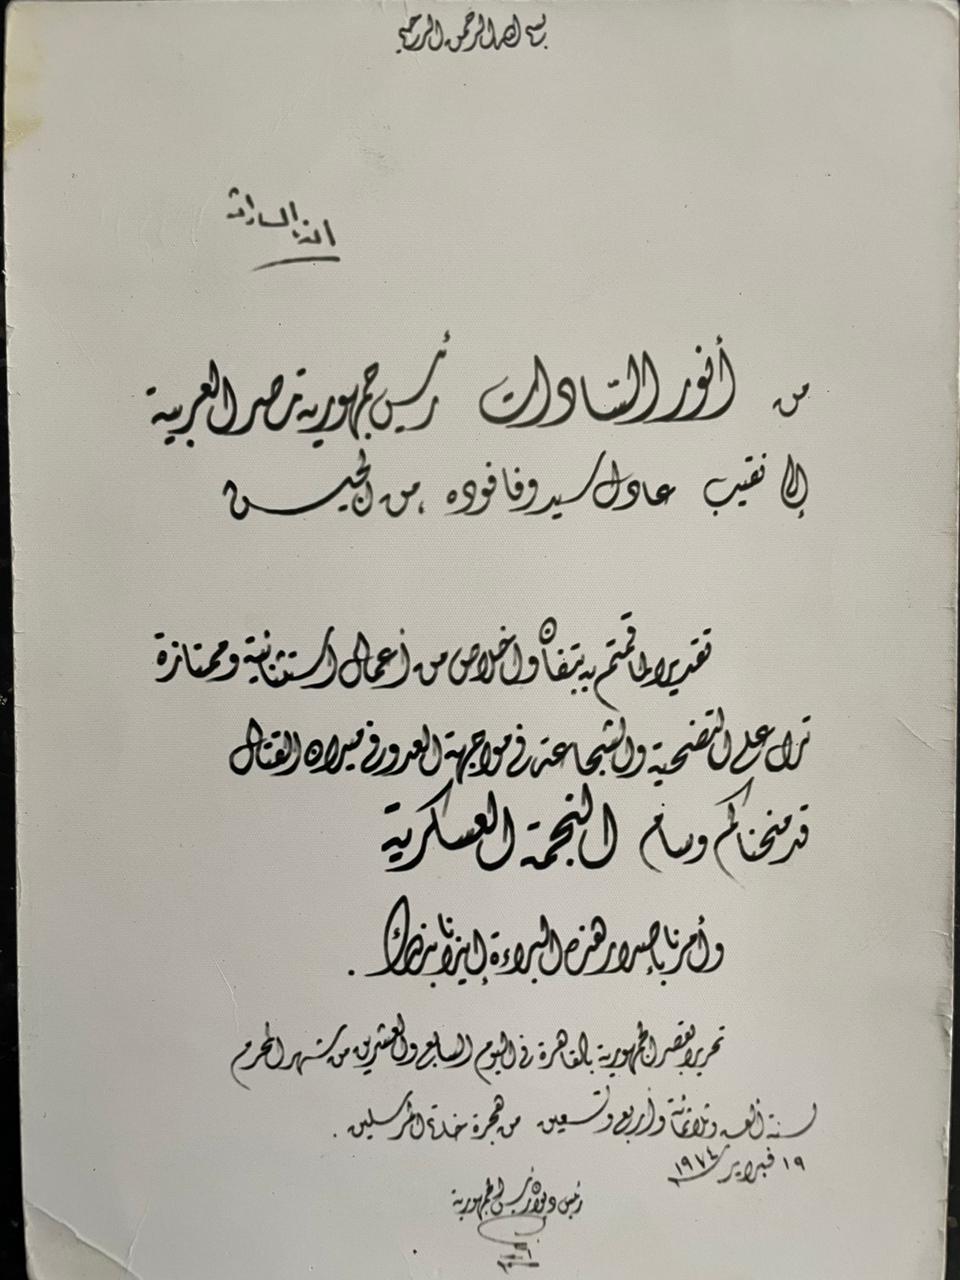 بسم الله الرحمن الرحيم
أنور السادات
من أنور السادات رئيس جمهورية مصر العربية
إلى نقيب عادل سيد وفا فوده ، من الجيش
تقديرا لما قمتم به بتفان وإخلاص من أعمال استثنائية وممتازة
تدل على التضحية والشجاعة في مواجهة العدو في ميدان القتال
قد منحناكم وسام النجمة العسكرية
وأمرنا بإصدار هذه البراءة إيذانا بذلك .
تحريرا بقصر الجمهورية بالقاهرة في اليوم السابع والعشرين من شهر المحرم
لسنة ألف وثلاثمائة وأربع وتسعين من هجرة خاتم المرسلين .
١٩ فبراير سنة ١٩٧٤
رئيس ديوان رئيس الجمهورية